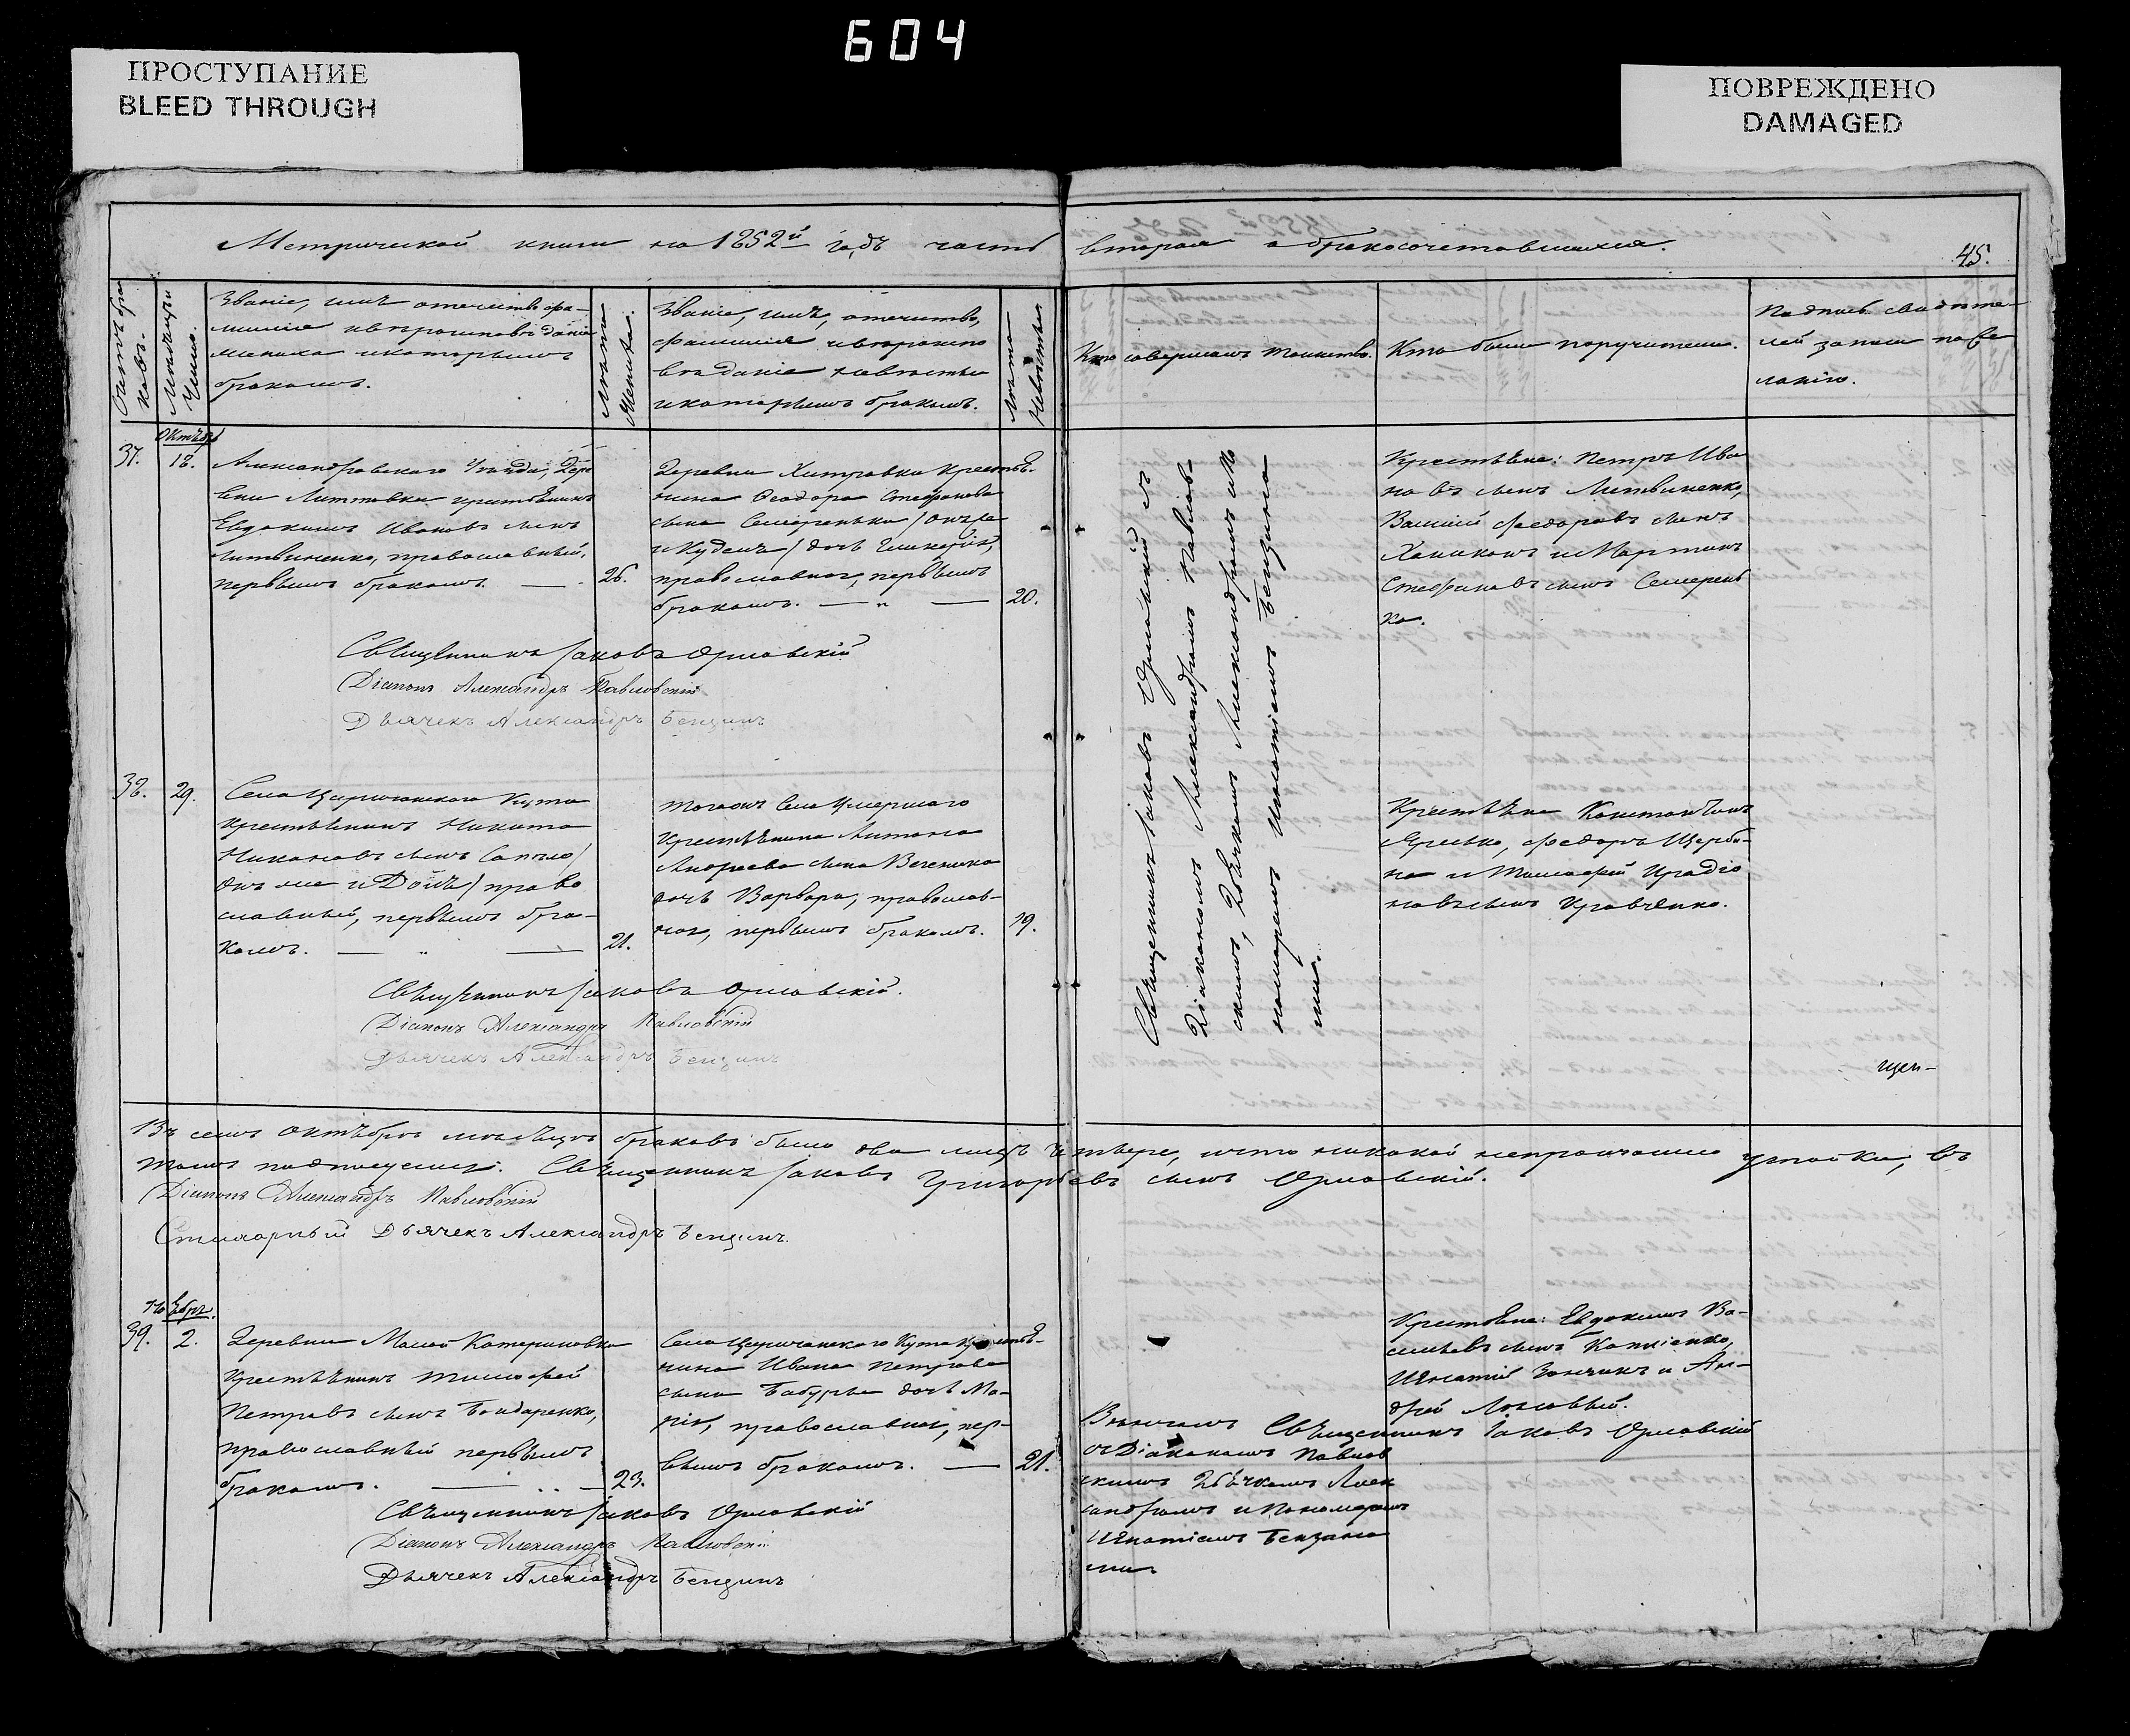 604
ПРОСТУПАНИЕ
BLEED THROUGH
ПОВРЕЖДЕНО
DAMAGED
Метрической книги на 1852й годъ часть вторая о бракосочетавшихся.
45.
Счетъ бра
ковъ.
Мѣсяцъ и
Число.
Званіе, имя, отечество фа-
милія и вѣроисповѣданіе
жениха и которымъ
бракомъ.
Лѣта
Жениха.
Званіе, имя, отечество,
фамилія и вѣроиспо
вѣданіе невѣсты
и которымъ бракомъ.
Лѣта
Невѣсты
Кто совершалъ таинство.
Кто были поручители.
Подпись свидѣте-
лей записи по же
ланію.
Октябрь
37.
18.
Александровскаго Уѣзда, Дере
вни крестьянинъ
Евдокимъ Ивановъ сынъ
Литвиненко, православный,
первымъ бракомъ.
26.
Деревни Хитровки крестья-
нина Ѳеодора Стефанова
сына Семеренька / онъ же
и / дочь Гликерія,
православная, первымъ
бракомъ. — „ —
20.
Священникъ Іаковъ Орловскій съ
Діакономъ Александромъ Павлов
скимъ, Дьячкомъ Александромъ и По
номаремъ Игнатіемъ Бензина
ми.
Крестьяне: Петръ Ива
новъ сынъ Литвиненко,
Василій Федоровъ сынъ
и Мартинъ
Стефановъ сынъ Семерень
ко.
Священникъ Іаковъ Орловскій
Діаконъ Александръ Павловскій
Дьячекъ Александръ Бензинъ
38.
29.
Села Царичанскаго Кута
крестьянинъ Никита
Никоновъ сынъ
онъ же и / право
славный, первымъ бра-
комъ. — „ —
21.
тогожъ Села Умершаго
крестьянина Антона
Андреева сына
дочь Варвара, православ-
ная, первымъ бракомъ.
19.
Крестьяне Константинъ
Яресько, Федоръ Щерби-
на и Тимофей Иродіо
новъ сынъ Кравченко.
Священникъ Іаковъ Орловскій.
Діаконъ Александръ Павловскій
Дьячекъ Александръ Бензинъ
щен-
Въ семъ Октябрѣ мѣсяцѣ браковъ было два лицъ четыре, и что никакой непроизошло утайки, въ
томъ подписуемся. Священникъ Іаковъ Григорьевъ сынъ Орловскій.
Діаконъ Александръ Павловскій
Стихарный Дьячекъ Александръ Бензинъ.
Ноябрь.
39.
2.
Деревни Малой Катериновки
крестьянинъ Тимофей
Петровъ сынъ Бондаренко,
православный первымъ
бракомъ.
23.
Села Царичанскаго Кута крестья-
нина Ивана Петрова
сына дочь Ма-
рія, православная, пер-
вымъ бракомъ. —
21.
Вѣнчалъ Священникъ Іаковъ Орловскій
съ Діакономъ Павлов
скимъ Дьячкомъ Алек
сандромъ и Пономаремъ
Игнатіемъ Бензина
ми.
Крестьяне: Евдокимъ Ва-
сильевъ сынъ
Игнатій и Ан-
дрей
Священникъ Іаковъ Орловскій
Діаконъ Александръ Павловскій
Дьячекъ Александръ Бензинъ